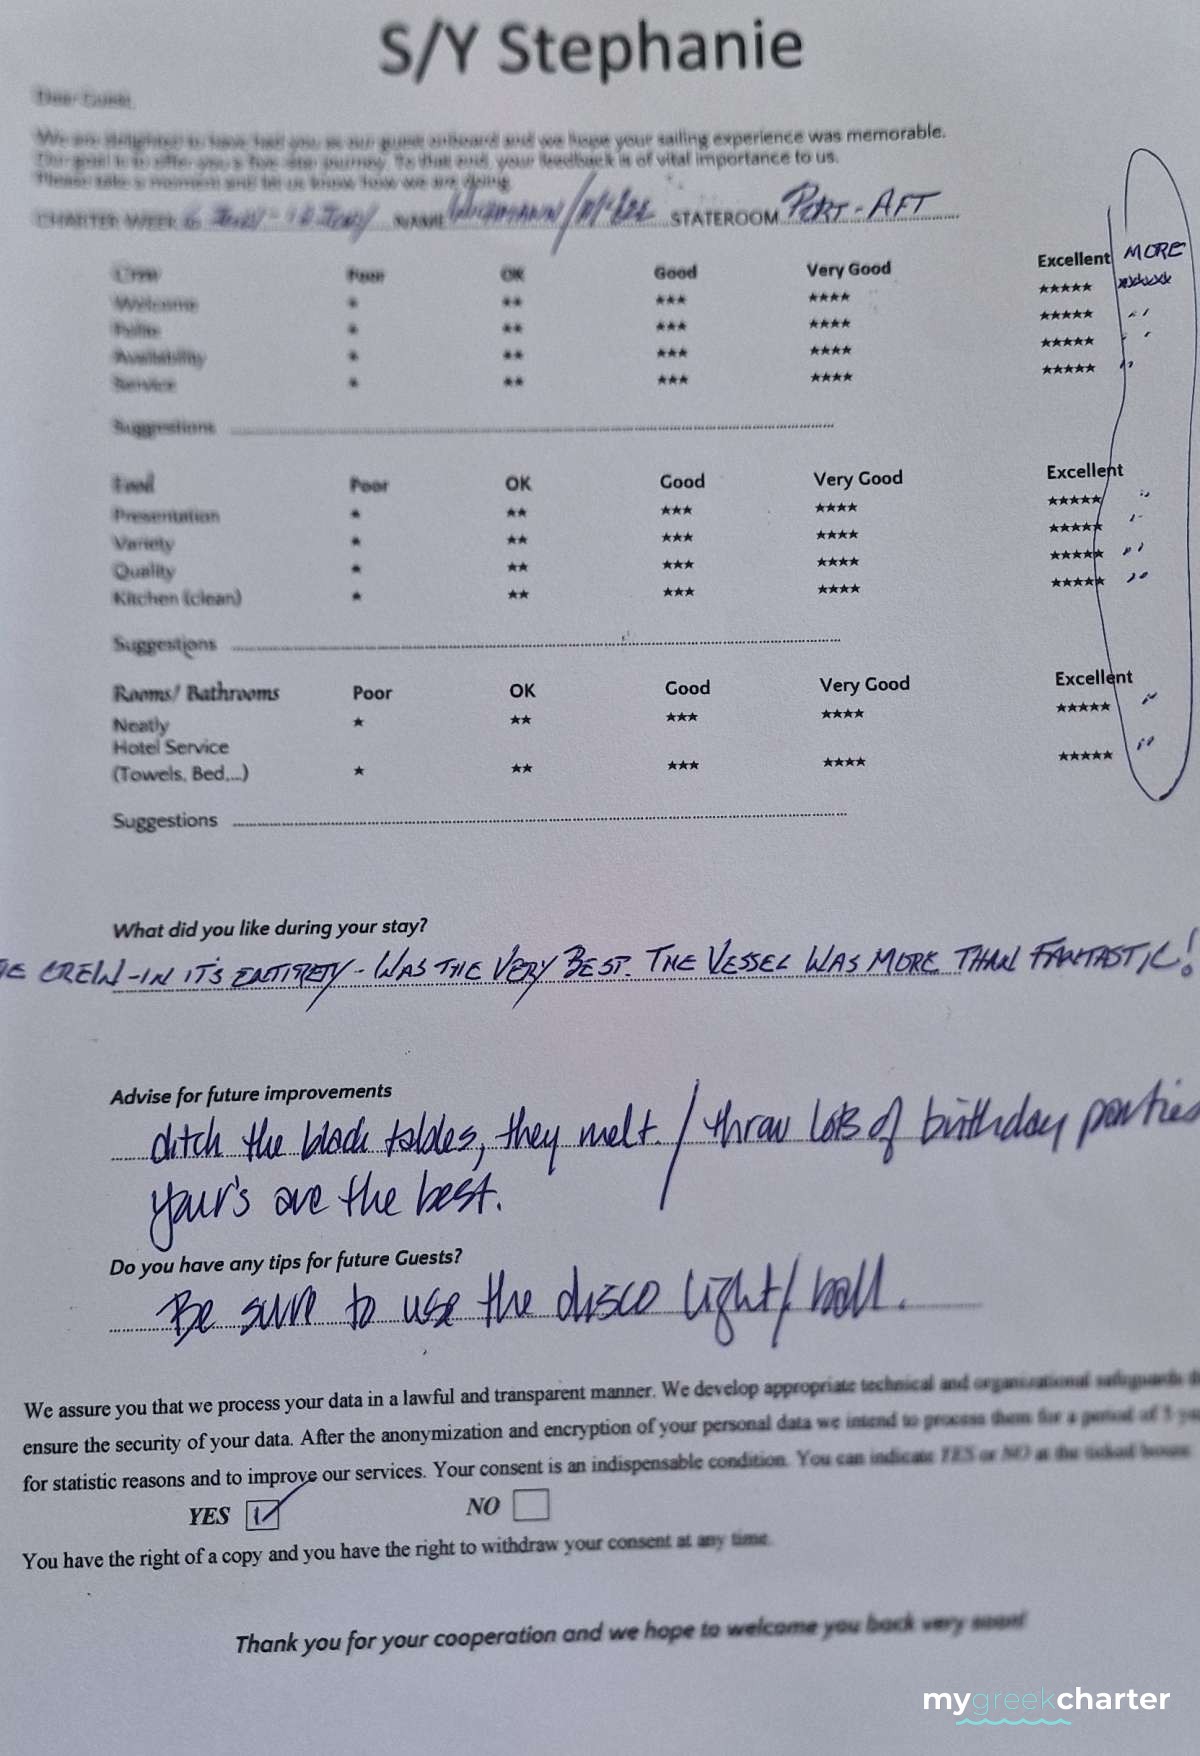 S/Y Stephanie
Dear Guest,
We are delighted to have had you as our guest onboard and we hope your sailing experience was memorable.
Our goal is to offer you a five star journey. To that end, your feedback is of vital importance to us.
Please take a moment and let us know how we are doing.
CHARTER WEEK NAME STATEROOM PORT-AFT
Crew Poor OK Good Very Good Excellent MORE
Welcome * ** *** **** ***** *****
Polite * ** *** **** ***** "
Availability * ** *** **** ***** "
Service * ** *** **** ***** "
Suggestions
Food Poor OK Good Very Good Excellent
Presentation * ** *** **** ***** "
Variety * ** *** **** ***** "
Quality * ** *** **** ***** "
Kitchen (clean) * ** *** **** ***** "
Suggestions
Rooms/ Bathrooms Poor OK Good Very Good Excellent
Neatly * ** *** **** ***** "
Hotel Service
(Towels, Bed,...) * ** *** **** ***** "
Suggestions
What did you like during your stay?
CREW-IN IT'S ENTIRETY-WAS THE VERY BEST. THE VESSEL WAS MORE THAN FANTASTIC!
Advise for future improvements
ditch the black tables, they melt. / throw lots of birthday parties
your's are the best.
Do you have any tips for future Guests?
Be sure to use the disco light/ball.
We assure you that we process your data in a lawful and transparent manner. We develop appropriate technical and organizational safeguards
ensure the security of your data. After the anonymization and encryption of your personal data we intend to process them for a period of 5
for statistic reasons and to improve our services. Your consent is an indispensable condition. You can indicate YES or NO at the ticked boxes
YES NO
You have the right of a copy and you have the right to withdraw your consent at any time.
Thank you for your cooperation and we hope to welcome you back very soon!
mygreekcharter